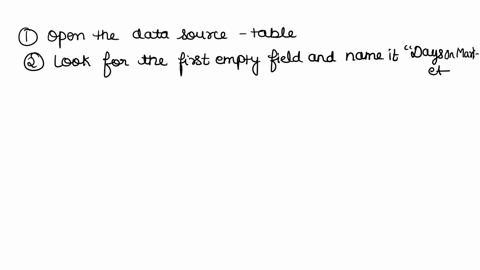 ① Open the data source - table
② Look for the first empty field and name it "Days on Mark-
et